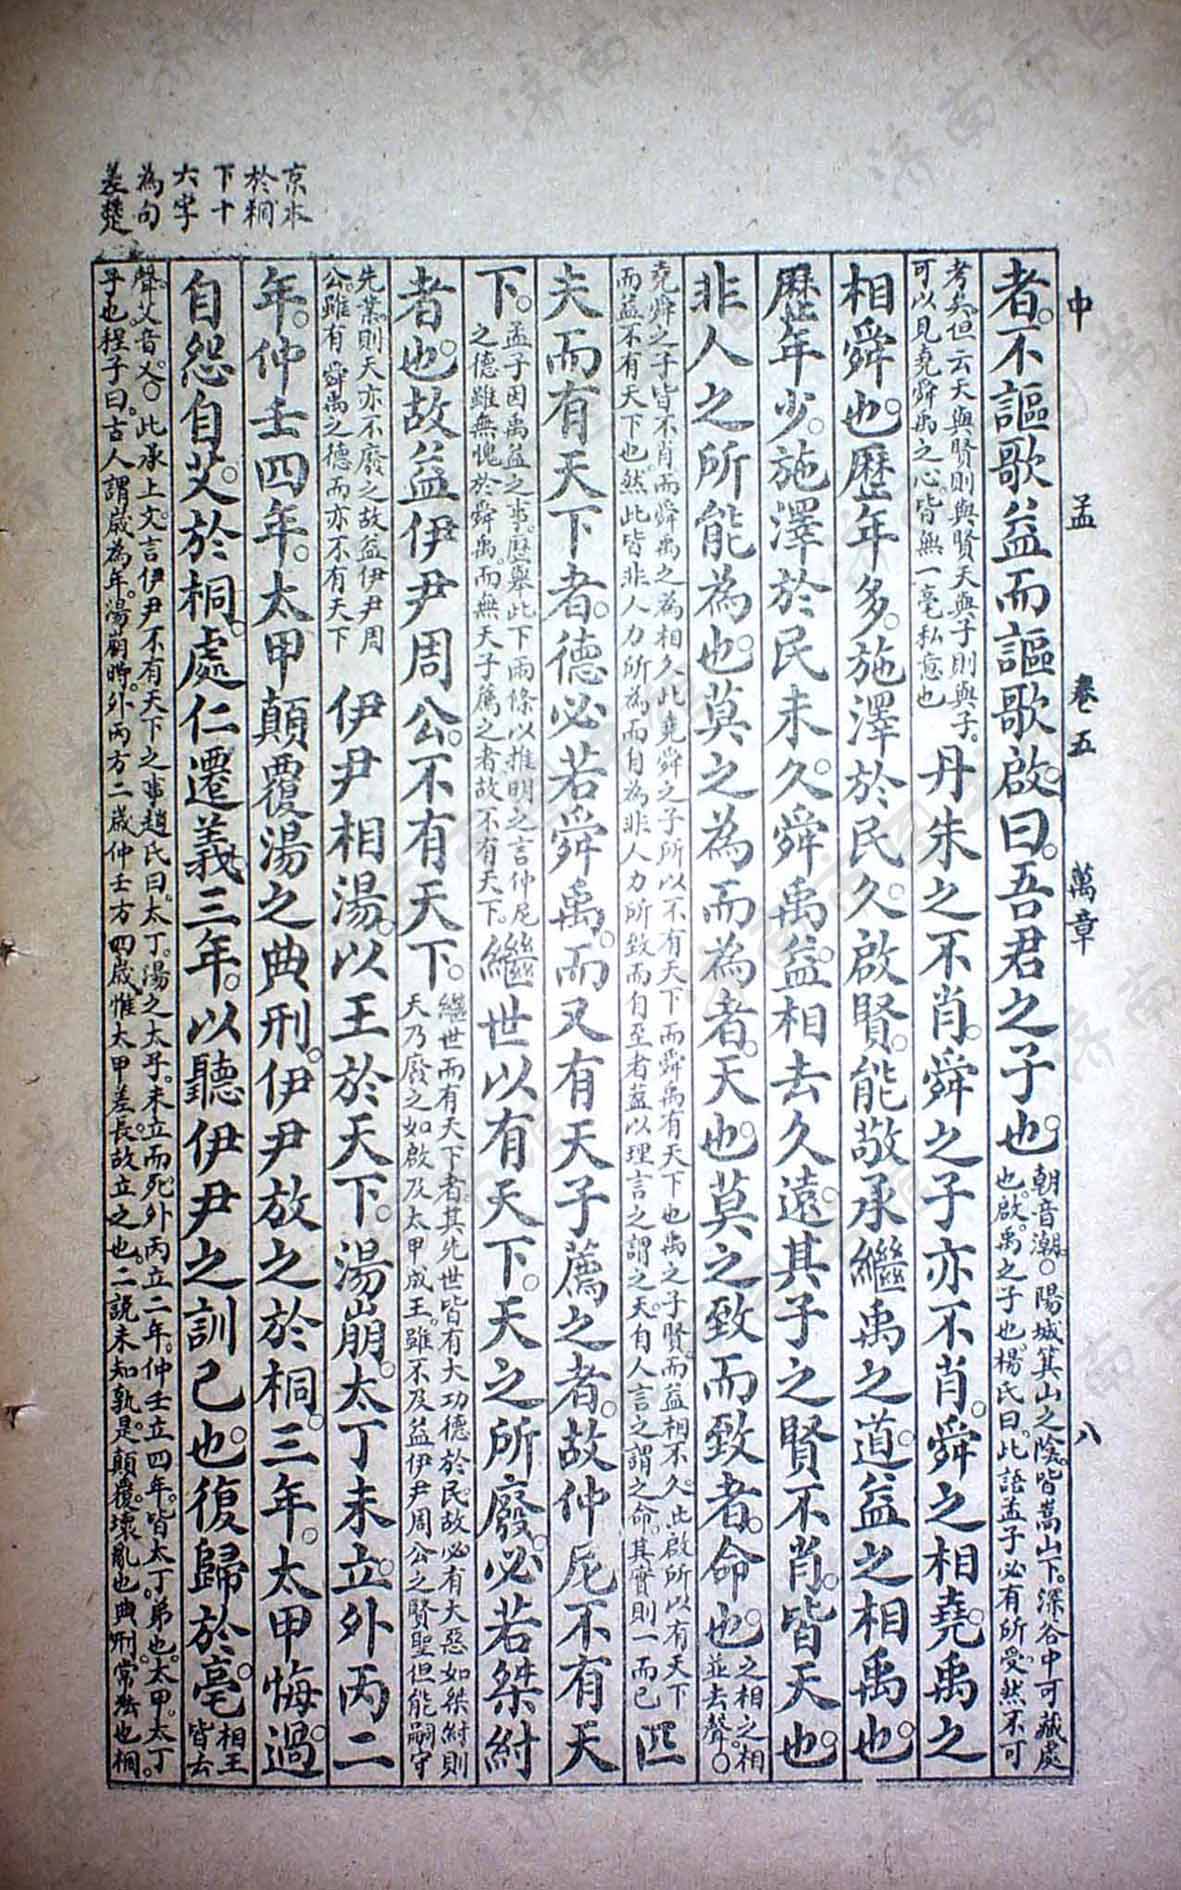 京本
於桐
下十
六字
為句
差楚
中 孟 卷五 萬章 八
者。不謳歌益而謳歌啟。曰。吾君之子也。
朝音潮。○陽城箕山之陰。皆嵩山下。深谷中可藏處
也。啟。禹之子也。楊氏曰。此語孟子必有所受。然不可
考矣。但云天與賢則與賢。天與子則與子。
可以見堯舜禹之心。皆無一毫私意也
丹朱之不肖。舜之子亦不肖。舜之相堯。禹之
相舜也。歷年多。施澤於民久。啟賢。能敬承繼禹之道。益之相禹也。
歷年少。施澤於民未久。舜禹益相去久遠。其子之賢不肖。皆天也。
非人之所能為也。莫之為而為者。天也。莫之致而致者。命也。
之相之相
並去聲。○
堯舜之子皆不肖。而舜禹之為相久。此堯舜之子所以不有天下。而舜禹有天下也。禹之子賢。而益相不久。此啟所以有天下
而益不有天下也。然此皆非人力所為而自為。非人力所致而自至者。蓋以理言之謂之天。自人言之謂之命。其實則一而已
匹
夫而有天下者。德必若舜禹。而又有天子薦之者。故仲尼不有天
下。
孟子因禹益之事。歷舉此下兩條以推明之。言仲尼
之德。雖無愧於舜禹。而無天子薦之者。故不有天下。
繼世以有天下。天之所廢。必若桀紂
者也。故益伊尹周公。不有天下。
繼世而有天下者。其先世皆有大功德於民。故必有大惡如桀紂。則
天乃廢之。如啟及太甲成王。雖不及益伊尹周公之賢聖。但能嗣守
先業。則天亦不廢之。故益伊尹周
公。雖有舜禹之德。而亦不有天下
伊尹相湯。以王於天下。湯崩。太丁未立。外丙二
年。仲壬四年。太甲顛覆湯之典刑。伊尹放之於桐。三年。太甲悔過。
自怨自艾。於桐。處仁遷義。三年。以聽伊尹之訓己也。復歸於亳。
相王
皆去
聲。艾音乂。○此承上文言伊尹不有天下之事。趙氏曰。太丁。湯之太子。未立而死。外丙立二年。仲壬立四年。皆太丁弟也。太甲。太丁
子也。程子曰。古人謂歲為年。湯崩時。外丙方二歲。仲壬方四歲。惟太甲差長。故立之也。二說未知孰是。顛覆。壞亂也。典刑。常法也。桐。